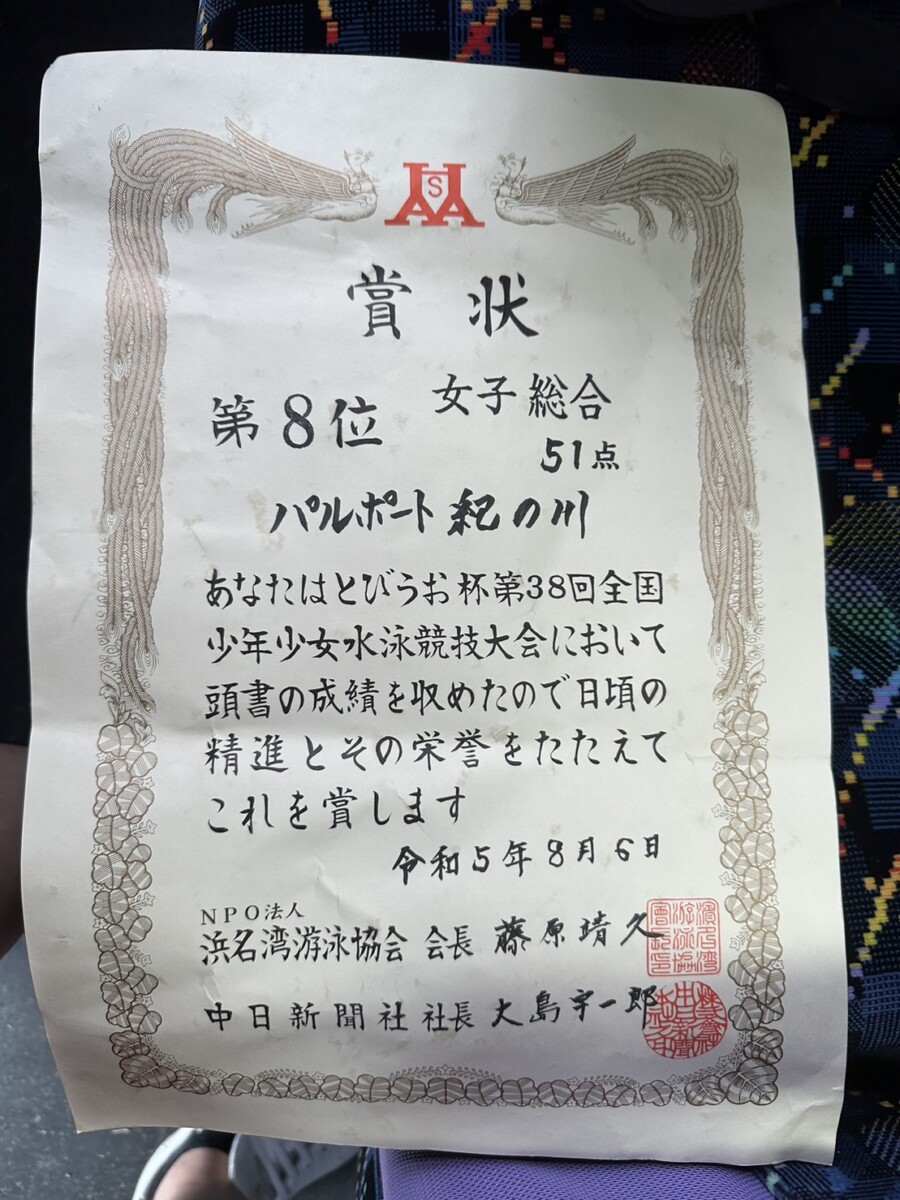 HSAA
賞状
第8位 女子総合
51点
パルポート紀の川
あなたはとびうお杯第38回全国
少年少女水泳競技大会において
頭書の成績を収めたので日頃の
精進とその栄誉をたたえて
これを賞します
令和5年8月6日
NPO法人
浜名湾游泳協会 会長 藤原靖久
中日新聞社 社長 大島宇一郎